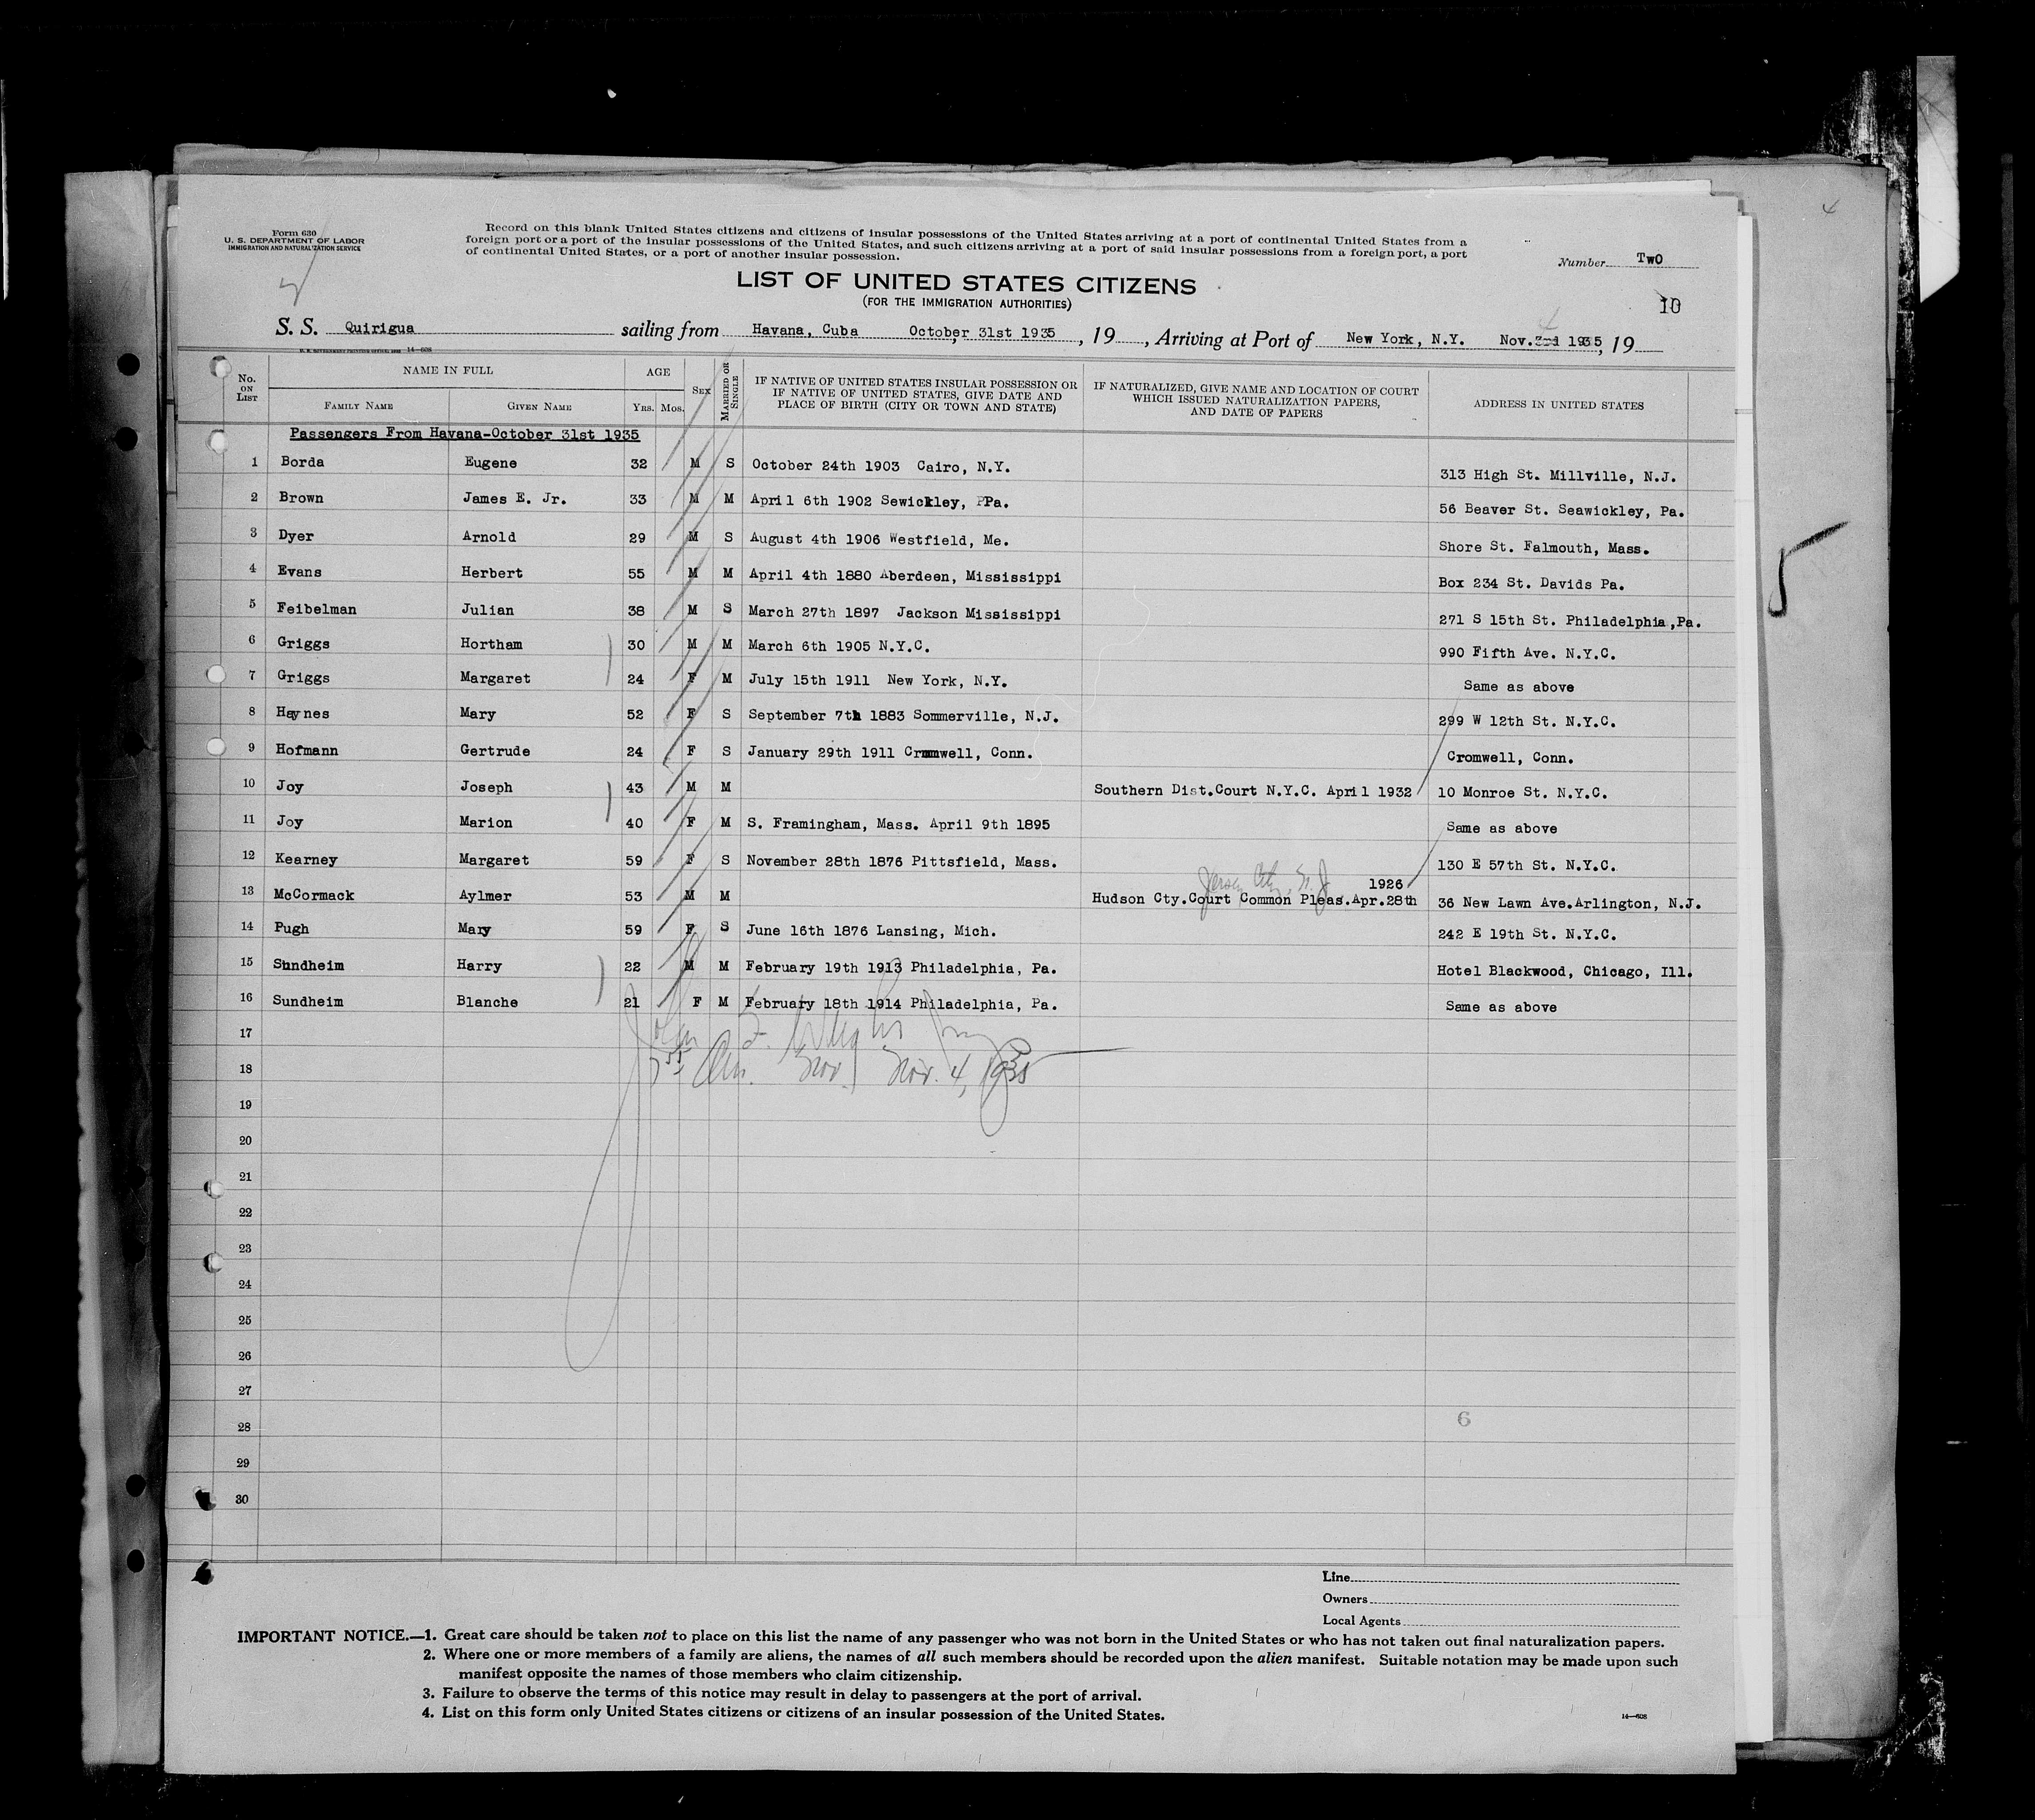 4
Form 630
U. S. DEPARTMENT OF LABOR
IMMIGRATION AND NATURALIZATION SERVICE
Record on this blank United States citizens and citizens of insular possessions of the United States arriving at a port of continental United States from a
foreign port or a port of the insular possessions of the United States, and such citizens arriving at a port of said insular possessions from a foreign port, a port
of continental United States, or a port of another insular possession.
Number TwO
LIST OF UNITED STATES CITIZENS
(FOR THE IMMIGRATION AUTHORITIES)
10
S. S. Quirigua sailing from Havana, Cuba October 31st 1935, 19, Arriving at Port of New York, N.Y. Nov. 3rd 4 1935, 19
U. S. GOVERNMENT PRINTING OFFICE 14—608
No. ON LIST NAME IN FULL AGE SEX MARRIED OR SINGLE IF NATIVE OF UNITED STATES INSULAR POSSESSION OR IF NATIVE OF UNITED STATES, GIVE DATE AND PLACE OF BIRTH (CITY OR TOWN AND STATE) IF NATURALIZED, GIVE NAME AND LOCATION OF COURT WHICH ISSUED NATURALIZATION PAPERS, AND DATE OF PAPERS ADDRESS IN UNITED STATES
FAMILY NAME GIVEN NAME YRS. MOS.
Passengers From Havana-October 31st 1935
1 Borda Eugene 32 M S October 24th 1903 Cairo, N.Y. 313 High St. Millville, N.J.
2 Brown James E. Jr. 33 M M April 6th 1902 Sewickley, PPa. 56 Beaver St. Seawickley, Pa.
3 Dyer Arnold 29 M S August 4th 1906 Westfield, Me. Shore St. Falmouth, Mass.
4 Evans Herbert 55 M M April 4th 1880 Aberdeen, Mississippi Box 234 St. Davids Pa.
5 Feibelman Julian 38 M S March 27th 1897 Jackson Mississippi 271 S 15th St. Philadelphia,Pa.
6 Griggs Hortham 30 M M March 6th 1905 N.Y.C. 990 Fifth Ave. N.Y.C.
7 Griggs Margaret 24 F M July 15th 1911 New York, N.Y. Same as above
8 Haynes Mary 52 F S September 7th 1883 Sommerville, N.J. 299 W 12th St. N.Y.C.
9 Hofmann Gertrude 24 F S January 29th 1911 Cromwell, Conn. Cromwell, Conn.
10 Joy Joseph 43 M M Southern Dist.Court N.Y.C. April 1932 10 Monroe St. N.Y.C.
11 Joy Marion 40 F M S. Framingham, Mass. April 9th 1895 Same as above
12 Kearney Margaret 59 F S November 28th 1876 Pittsfield, Mass. 130 E 57th St. N.Y.C.
Jersey City, N.J. 1926
13 McCormack Aylmer 53 M M Hudson Cty.Court Common Pleas.Apr.28th 36 New Lawn Ave.Arlington, N.J.
14 Pugh Mary 59 F S June 16th 1876 Lansing, Mich. 242 E 19th St. N.Y.C.
15 Sundheim Harry 22 M M February 19th 1913 Philadelphia, Pa. Hotel Blackwood, Chicago, Ill.
16 Sundheim Blanche 21 F M February 18th 1914 Philadelphia, Pa. Same as above
17
18 Nov. 4, 1935
19
20
21
22
23
24
25
26
27
28 6
29
30
Line
Owners
Local Agents
IMPORTANT NOTICE.—1. Great care should be taken not to place on this list the name of any passenger who was not born in the United States or who has not taken out final naturalization papers.
2. Where one or more members of a family are aliens, the names of all such members should be recorded upon the alien manifest. Suitable notation may be made upon such
manifest opposite the names of those members who claim citizenship.
3. Failure to observe the terms of this notice may result in delay to passengers at the port of arrival.
4. List on this form only United States citizens or citizens of an insular possession of the United States.
14—608